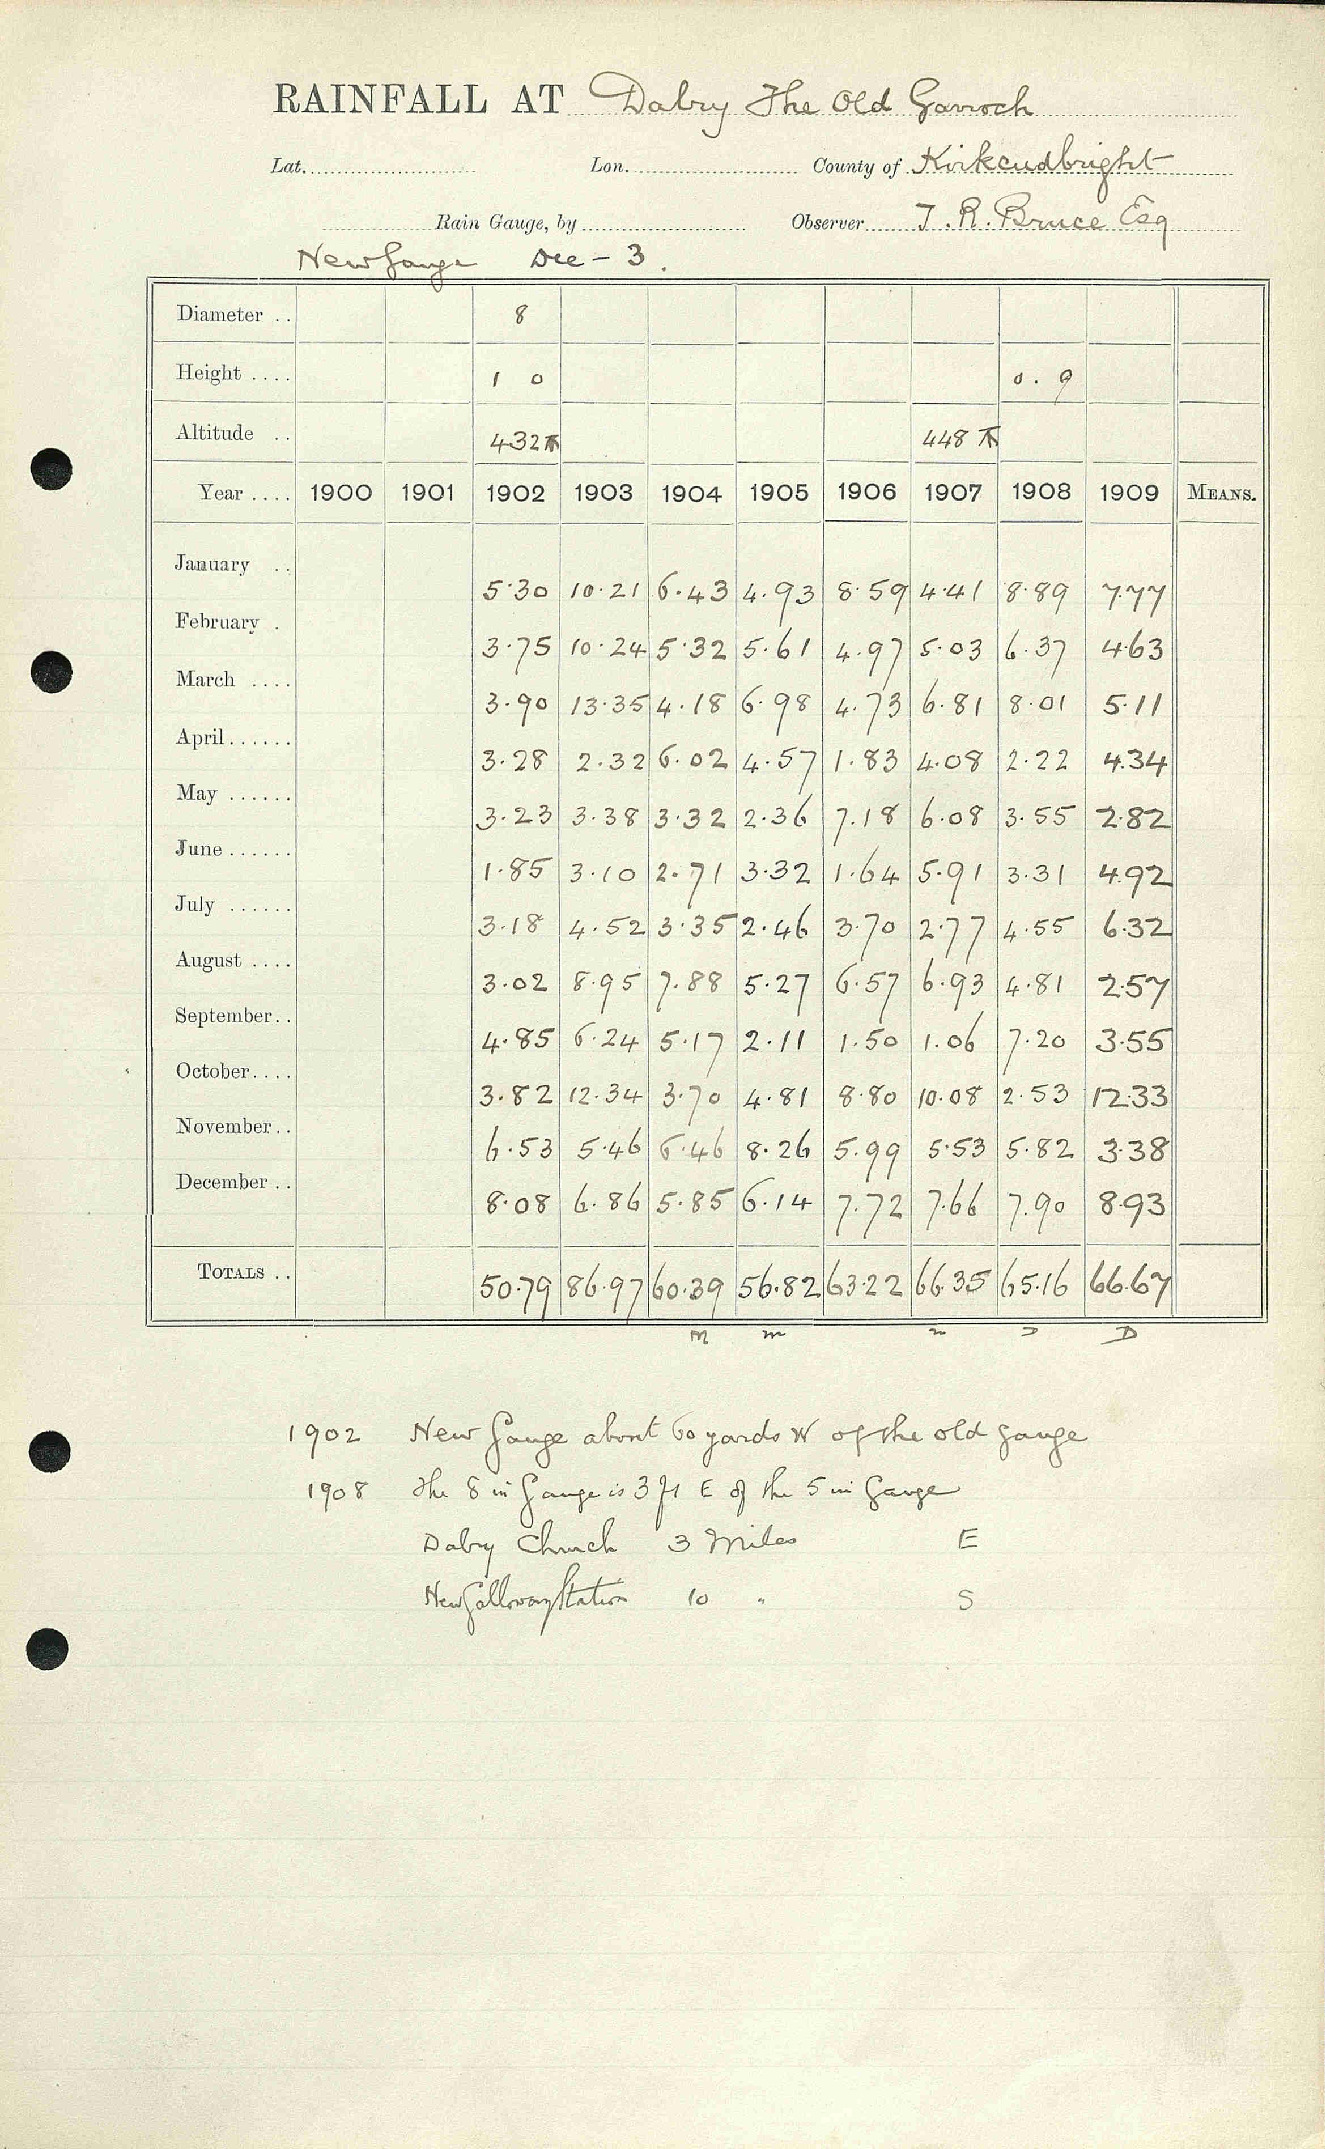 RAINFALL AT Dalry The Old Garroch
Lat. Lon. County of Kirkcudbright
Rain Gauge, by Observer T. R. Bruce Esq
New Gauge Dec - 3.
Diameter .. 8
Height .... 1 0 0. 9
Altitude .. 432 448
Year .... 1900 1901 1902 1903 1904 1905 1906 1907 1908 1909 MEANS.
January .. 5.30 10.21 6.43 4.93 8.59 4.41 8.89 7.77
February . 3.75 10.24 5.32 5.61 4.97 5.03 6.37 4.63
March .... 3.90 13.35 4.18 6.98 4.73 6.81 8.01 5.11
April...... 3.28 2.32 6.02 4.57 1.83 4.08 2.22 4.34
May ...... 3.23 3.38 3.32 2.36 7.18 6.08 3.55 2.82
June ...... 1.85 3.10 2.71 3.32 1.64 5.91 3.31 4.92
July ...... 3.18 4.52 3.35 2.46 3.70 2.77 4.55 6.32
August .... 3.02 8.95 7.88 5.27 6.57 6.93 4.81 2.57
September.. 4.85 6.24 5.17 2.11 1.50 1.06 7.20 3.55
October.... 3.82 12.34 3.70 4.81 8.80 10.08 2.53 12.33
November.. 6.53 5.46 6.46 8.26 5.99 5.53 5.82 3.38
December .. 8.08 6.86 5.85 6.14 7.72 7.66 7.90 8.93
TOTALS .. 50.79 86.97 60.39 56.82 63.22 66.35 65.16 66.67
M m D
1902 New Gauge about 60 yards W of the old gauge
1908 The 8 in Gauge is 3 ft E of the 5 in Gauge
Dalry Church 3 Miles E
New Galloway Station 10 " S